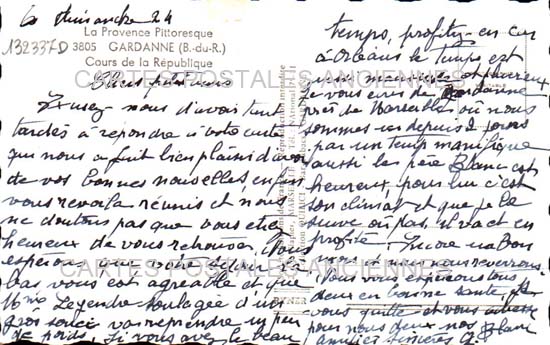 La Provence Pittoresque
132337D 3805 GARDANNE (B.-du-R.)
Cours de la République
CARTES POSTALES ANCIENNES
Excusez-nous d'avoir tant
tardés à répondre à votre carte
qui nous a fait bien plaisir d'avoir
de vos bonnes nouvelles, enfin
vous revoilà réunis et nous
ne doutons pas que vous etes
heureux de vous retrouver, Nous
espérons que votre séjour là
bas vous est agréable et que
Mme Legendre soulagée d'un
gros soucis va reprendre un peu
de poids. Si vous avez le beau
temps, profitez-en car
à Orléans le temps est
aussi mauvais et pluvieux
je vous écris de Gardanne
près de Marseille où nous
sommes depuis 2 jours
par un temps manifique
aussi les père Blanc est
heureux, pour lui c'est
son climat et que je le
suive où pas, il va et en
profite. Encore un bon
mois et nous nous reverrons.
Nous vous espérons tous
deux en bonne santé, je
vous quitte et vous adresse
pour nous deux nos
amitiés sincères
CARTES POSTALES ANCIENNES